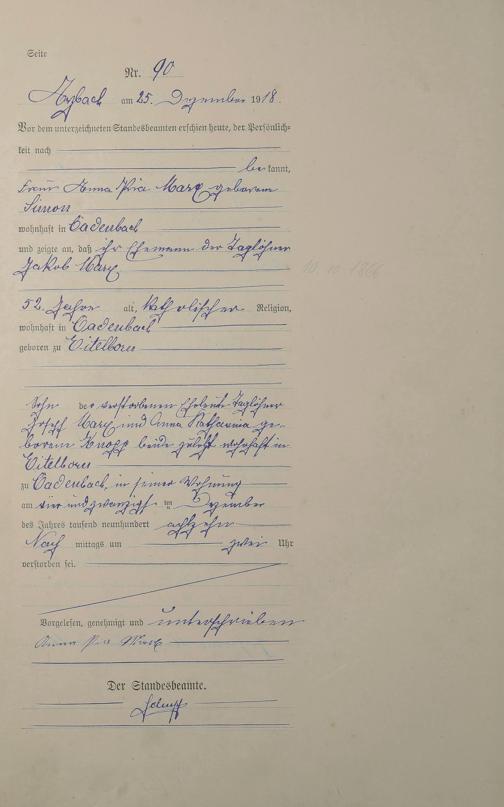 Seite
Nr. 90
Arzbach am 25. Dezember 1918.
Vor dem unterzeichneten Standesbeamten erschien heute, der Persönlich-
keit nach
bekannt,
Frau Anna Pia Marx geborene
Simon
wohnhaft in Cadenbach
und zeigte an, daß ihr Ehemann der Taglöhner
Jakob Marx
52 Jahre alt, katholischer Religion,
wohnhaft in Cadenbach
geboren zu Eitelborn
Sohn der verstorbenen Eheleute Taglöhner
Joseph Marx und Anna Katharina ge-
borene Knopp beide zuletzt wohnhaft in
Eitelborn
zu Cadenbach, in seiner Wohnung
am vierundzwanzigsten Dezember
des Jahres tausend neunhundert achtzehn
Nachmittags um zwei Uhr
verstorben sei.
Vorgelesen, genehmigt und unterschrieben
Anna Pia Marx
Der Standesbeamte.